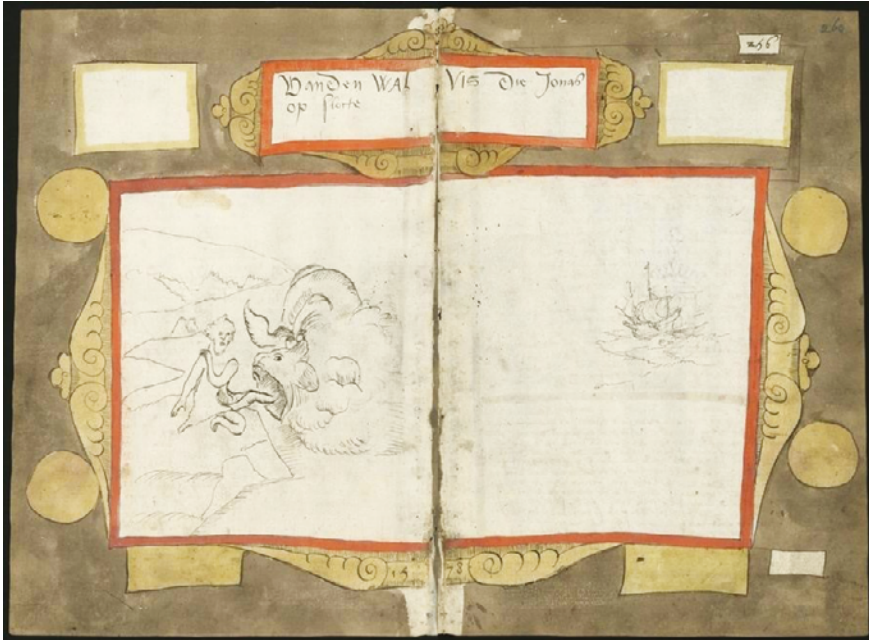 260
256
Van Den WAL VIS Die Jonas
op slorte
15 78